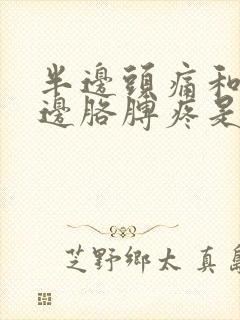 半邊頭痛和
邊胳膊疼是
芝野鄉太 真島